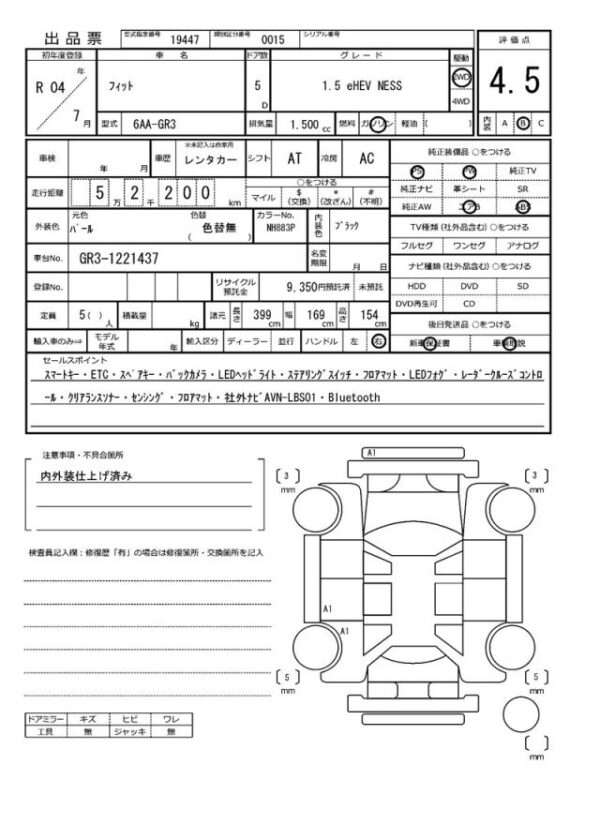 出品票 型式指定番号 19447 類別区分番号 0015 シリアル番号
評価点
初年度登録 車名 ドア数 グレード 駆動
R 04 年 7 月 フィット 5 D 1.5 eHEV NESS 2WD 4WD
4.5
型式 6AA-GR3 排気量 1,500 cc 燃料 ガソリン 軽油 ( )
内装 A B C
車検 年 月 車歴 ※未記入は自家用 レンタカー シフト AT 冷房 AC
純正装備品 ○をつける
PS PW 純正TV
純正ナビ 革シート SR
純正AW エアB ABS
走行距離 5 万 2 千 2 0 0 km
○をつける
マイル $ (交換) * (改ざん) # (不明)
外装色 元色 パール 色替 色替無 ( ) カラーNo. NH883P 内装色 ブラック
TV種類 (社外品含む) ○をつける
フルセグ ワンセグ アナログ
車台No. GR3-1221437 名変期限 月 日
ナビ種類 (社外品含む) ○をつける
HDD DVD SD
DVD再生可 CD
登録No. リサイクル預託金 9,350円預託済 未預託
定員 5 ( ) 人 積載量 kg 諸元 長さ 399 cm 幅 169 cm 高さ 154 cm
後日発送品 ○をつける
新車保証書 車輌取説
輸入車のみ⇒ モデル年式 年 輸入区分 ディーラー 並行 ハンドル 左 右
セールスポイント
スマートキー・ETC・スペアキー・バックカメラ・LEDヘッドライト・ステアリングスイッチ・フロアマット・LEDフォグ・レーダークルーズコントロ
ール・クリアランスソナー・センシング・フロアマット・社外ナビAVN-LBS01・Bluetooth
注意事項・不具合箇所
内外装仕上げ済み
検査員記入欄：修復歴「有」の場合は修復箇所・交換箇所を記入
A1
3 mm
3 mm
A1
A1
5 mm
5 mm
mm
ドアミラー キズ ヒビ ワレ
工具 無 ジャッキ 無